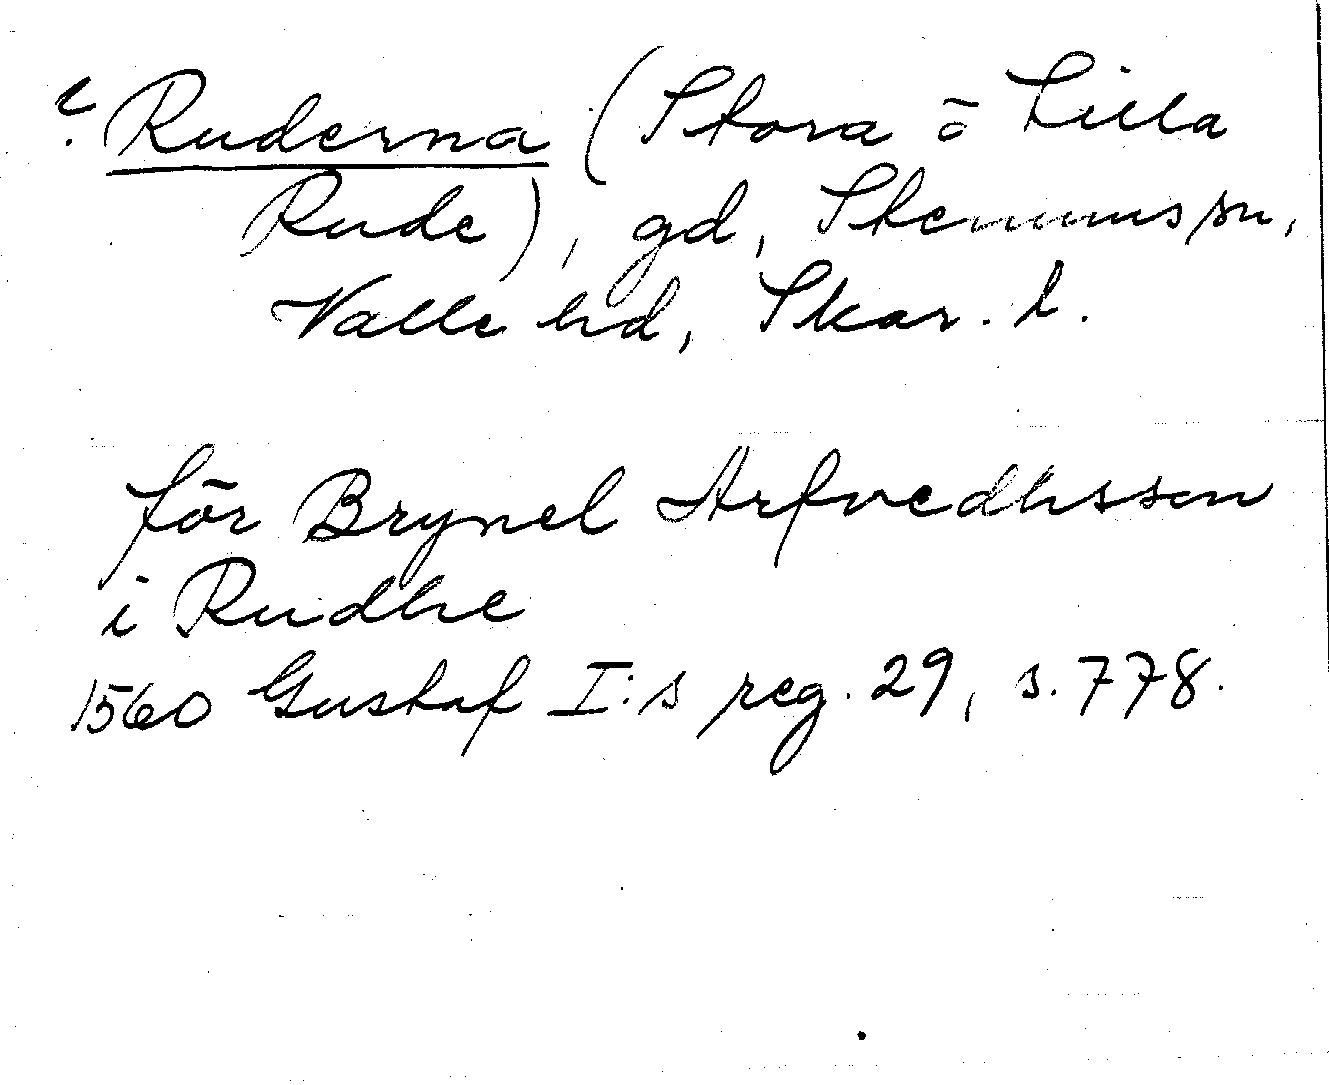 ? Ruderna (Stora o Lilla
Rude), gd, Stenums sn,
Valle hd, Skar. l.
för Brynel Arfvedhsson
i Rudhe
1560 Gustaf I:s reg. 29, s. 778.